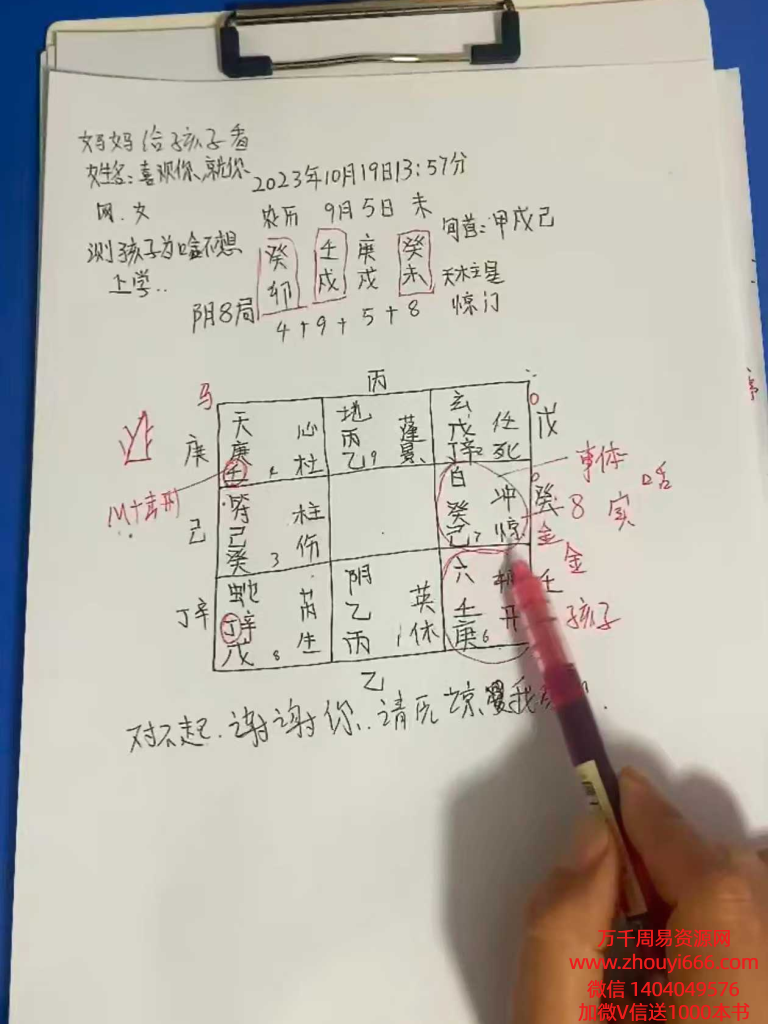 妈妈给孩子看
姓名:喜欢你,就你
网.女
测孩子为啥不想
上学..
2023年10月19日13:57分
农历 9月5日 未
旬首:甲戌己
癸 壬 庚 癸
卯 戌 戌 未
天柱星
惊门
阴8局
4+9+5+8
马
丙
庚
天 心
庚
壬 4 杜
地
丙 蓬
乙 9 景
玄
戊 任
丁辛 2 死
戊
己
符 柱
己
癸 3 伤
白 冲
癸
己 7 惊
癸
事体
8 实
金
金
丁辛
蛇 芮
丁辛
戊 8 生
阴
乙 英
丙 1 休
六
壬
庚 6 开
壬
孩子
乙
对不起.谢谢你..请原谅
万千周易资源网
www.zhouyi666.com
微信 1404049576
加微V信送1000本书